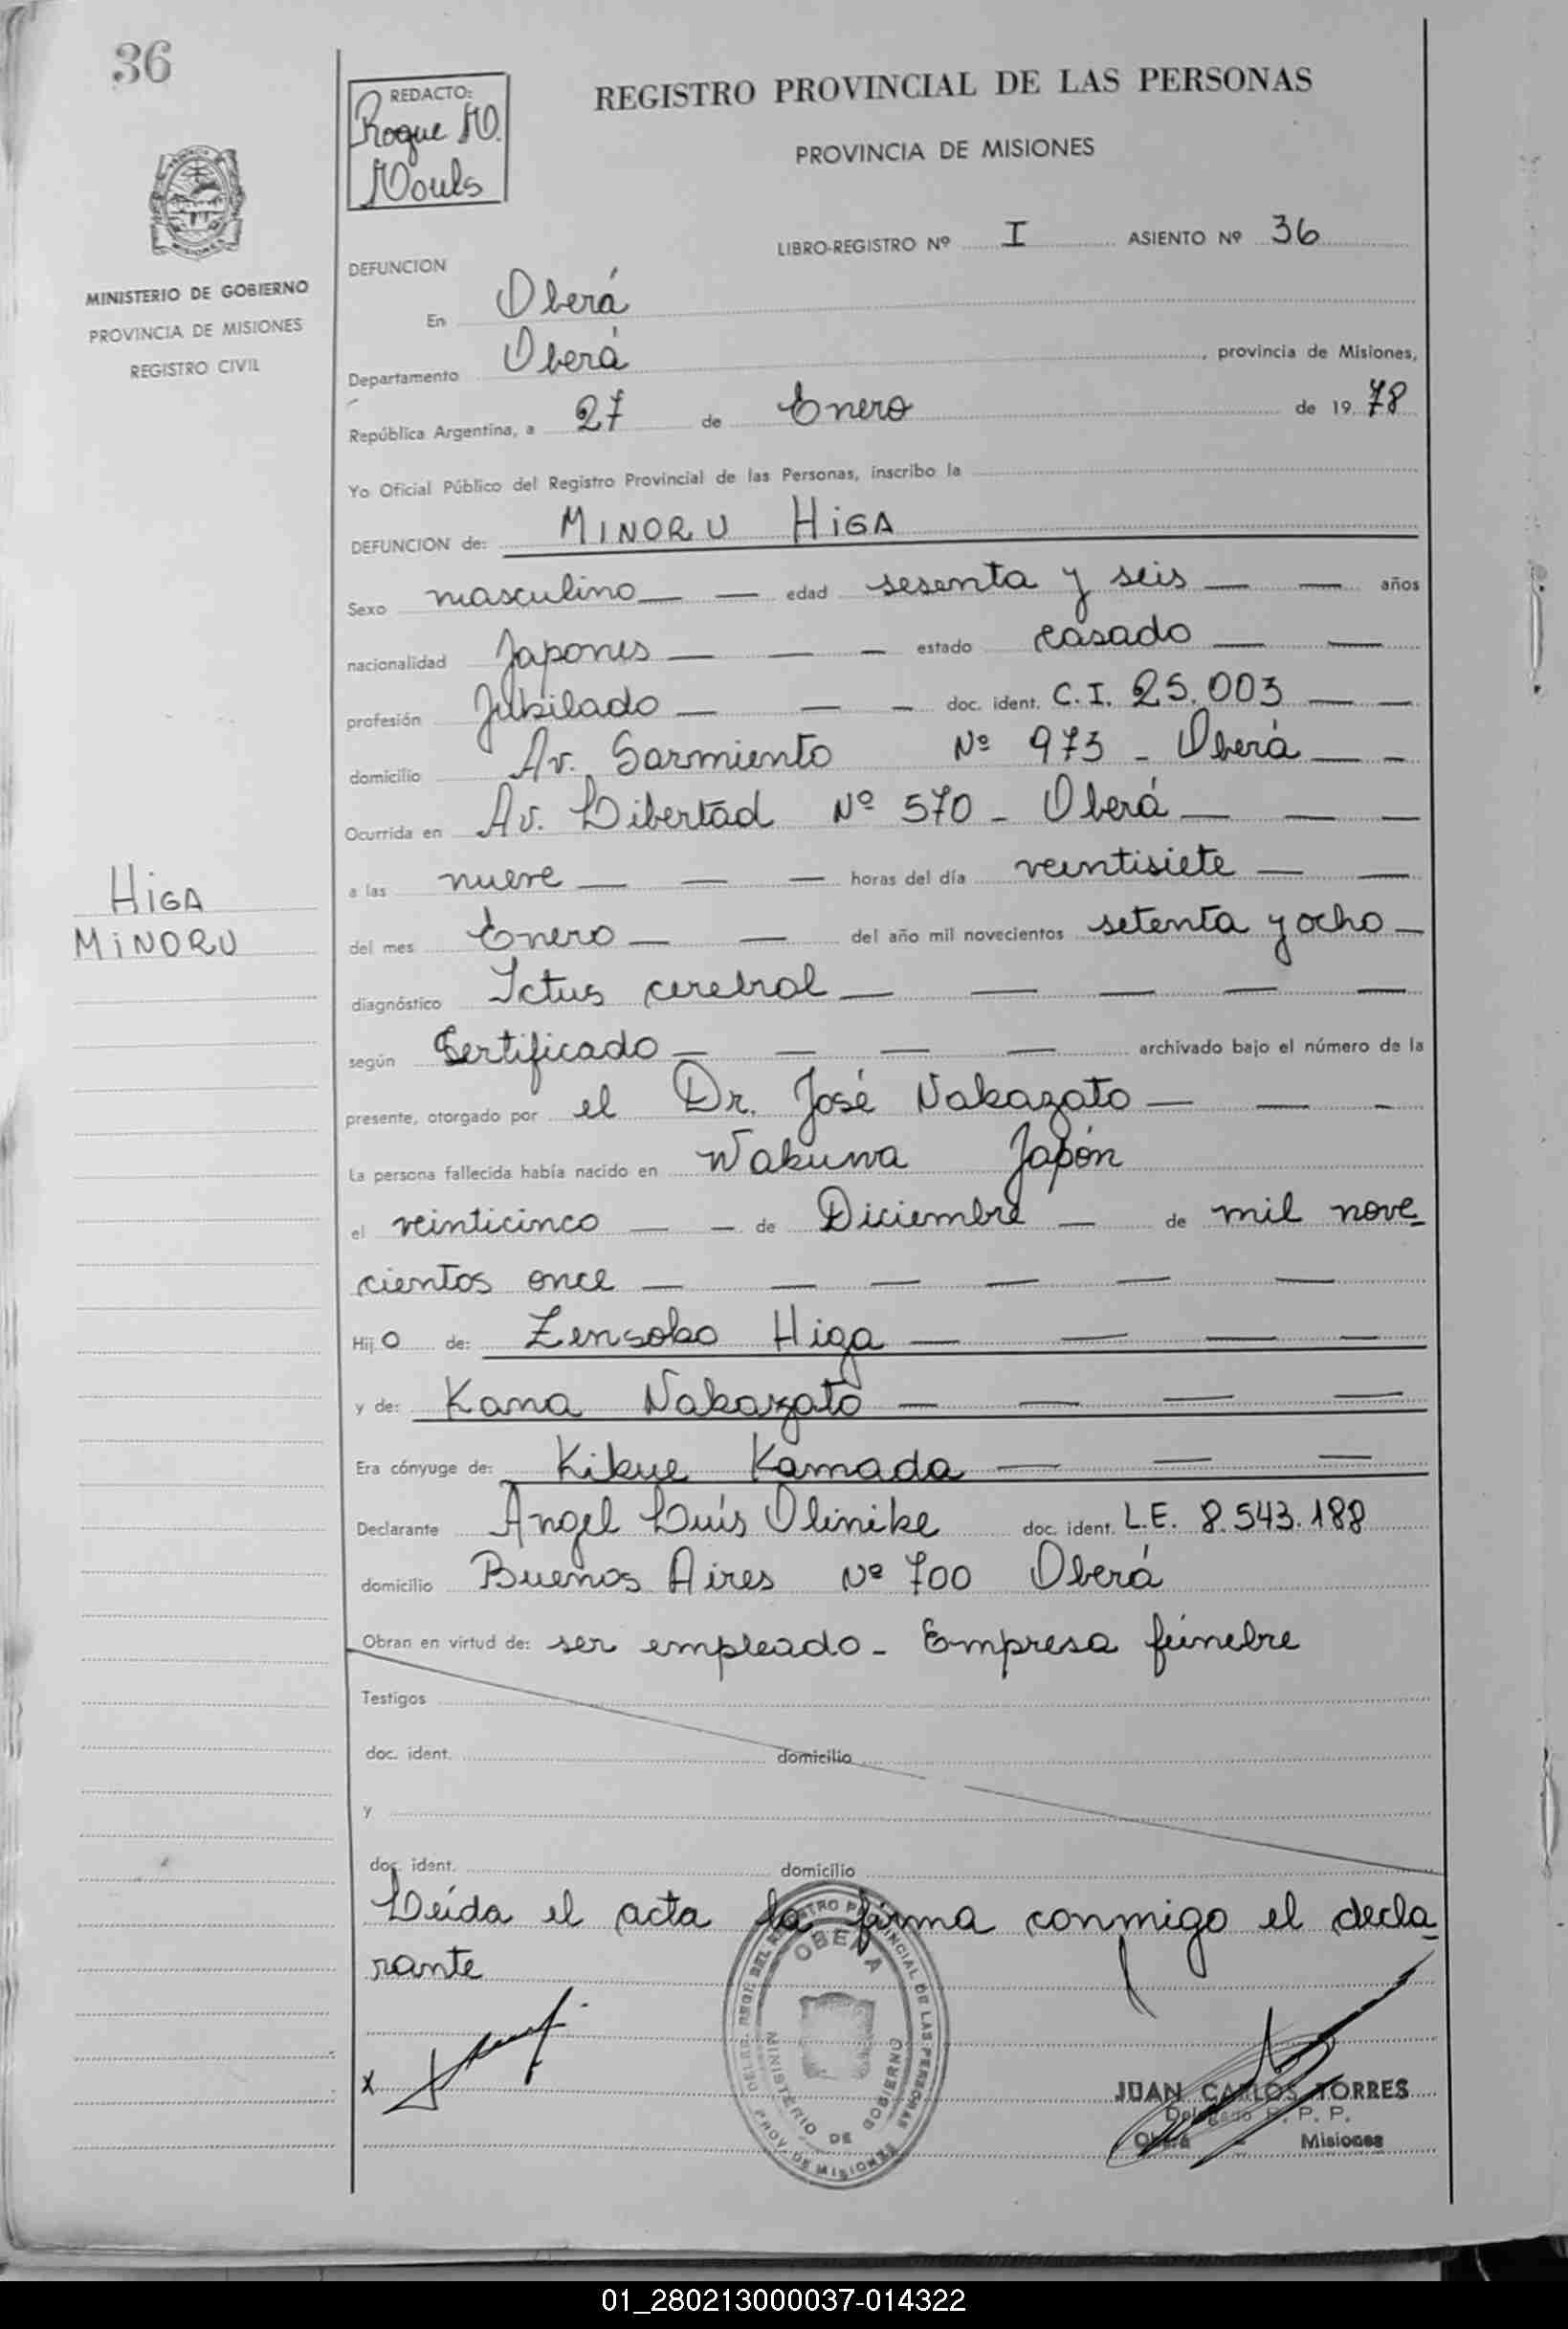 36
REDACTO:
Roque
REGISTRO PROVINCIAL DE LAS PERSONAS
PROVINCIA DE MISIONES
MISIONES
MINISTERIO DE GOBIERNO
PROVINCIA DE MISIONES
REGISTRO CIVIL
LIBRO-REGISTRO Nº I ASIENTO Nº 36
DEFUNCION
En Oberá
Departamento Oberá, provincia de Misiones,
República Argentina, a 27 de Enero de 1978
Yo Oficial Público del Registro Provincial de las Personas, inscribo la
DEFUNCION de: MINORU HIGA
Sexo masculino — — edad sesenta y seis — — años
nacionalidad Japones — — — estado casado — —
profesión Jubilado — — — doc. ident. C.I. 25.003 — —
domicilio Av. Sarmiento Nº 973 - Oberá — —
Ocurrida en Av. Libertad Nº 570 - Oberá — — —
HIGA
MINORU
a las nueve — — — horas del día veintisiete — —
del mes Enero — — del año mil novecientos setenta y ocho —
diagnóstico Ictus cerebral — — — — —
según Certificado — — — — archivado bajo el número de la
presente, otorgado por el Dr. José Nakazato — — -
La persona fallecida había nacido en Wakuwa Japón
el veinticinco — — de Diciembre — de mil nove-
cientos once — — — — — —
Hijo de: Zensoko Higa — — — —
y de: Kana Nakazato — — — —
Era cónyuge de: Kikue Kamada — — —
Declarante Angel Luís Olinike doc. ident. L.E. 8.543.188
domicilio Buenos Aires Nº 700 Oberá
Obran en virtud de: ser empleado - Empresa fúnebre
Testigos
doc. ident. domicilio
y
doc. ident. domicilio
Leída el acta la firma conmigo el decla-
rante
DELEG. REGL. DEL REGISTRO PROVINCIAL DE LAS PERSONAS
OBERA
MINISTERIO DE GOBIERNO
PROV. DE MISIONES
x
JUAN CARLOS TORRES
Delegado R. P. P.
Oberá - Misiones
01_280213000037-014322